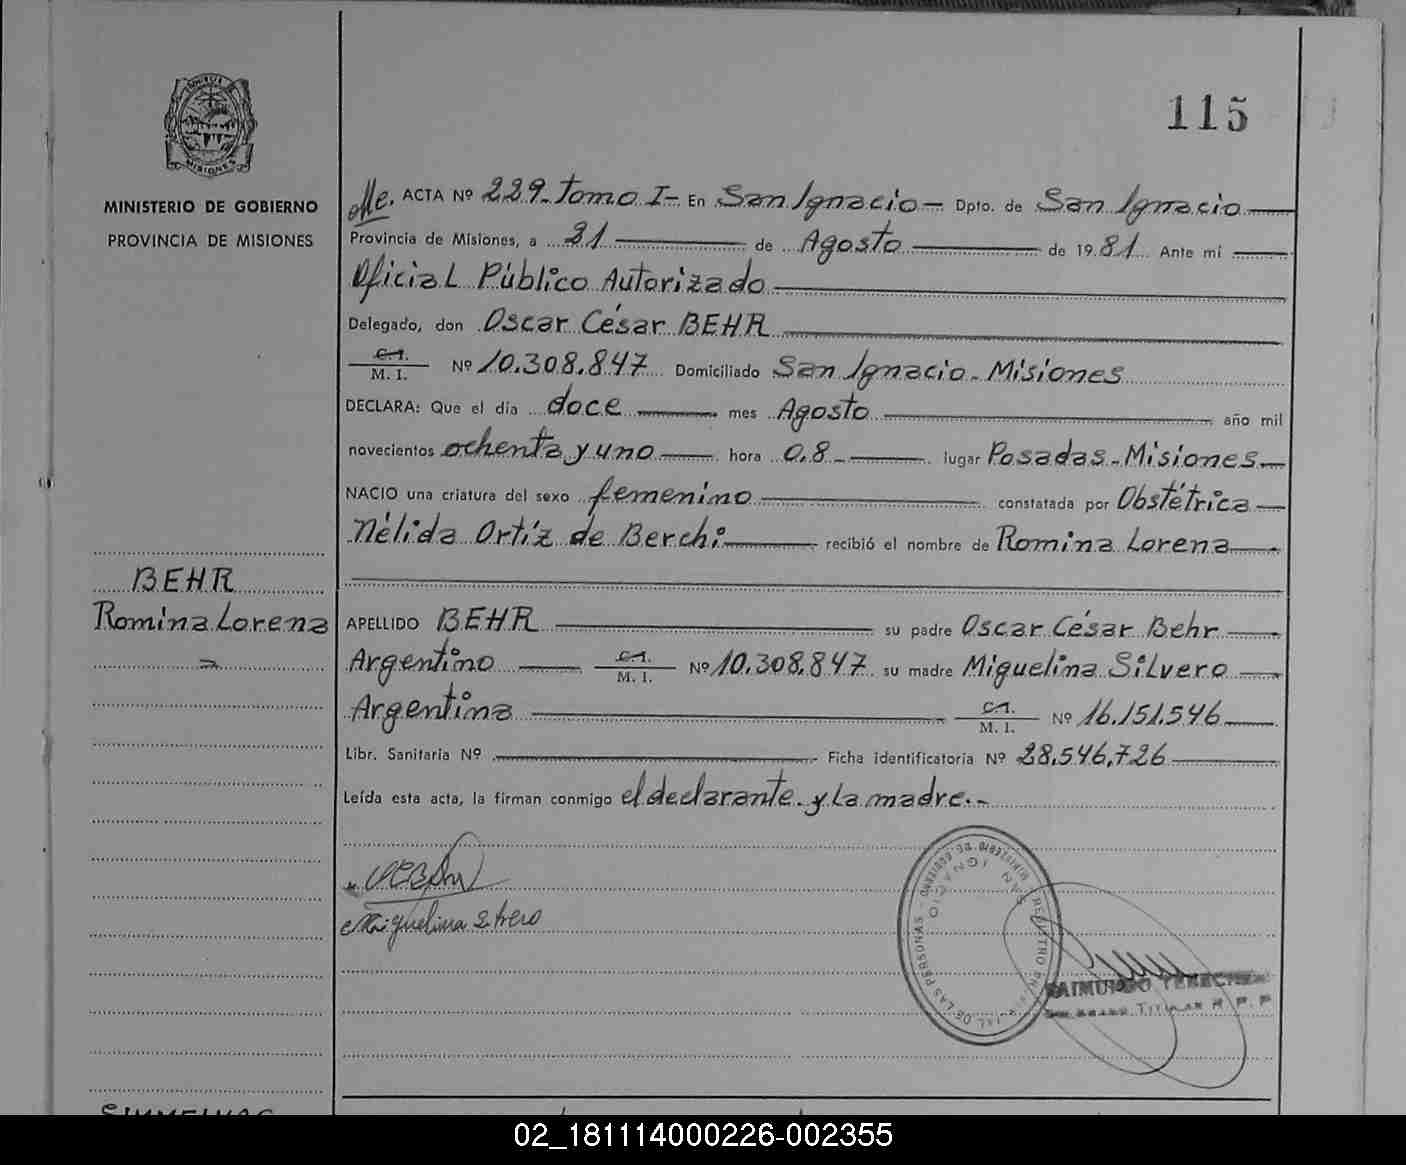 115
MISIONES
MINISTERIO DE GOBIERNO
PROVINCIA DE MISIONES
ACTA Nº 229. Tomo I- En San Ignacio- Dpto. de San Ignacio
Provincia de Misiones, a 21 de Agosto de 1981. Ante mi
Oficial Público Autorizado
Delegado, don Oscar César BEHR
C.I.
M. I. Nº 10.308.847 Domiciliado San Ignacio. Misiones
DECLARA: Que el día doce mes Agosto año mil
novecientos ochenta y uno hora 0,8 lugar Posadas-Misiones
NACIO una criatura del sexo femenino constatada por Obstétrica
Nélida Ortíz de Berchi recibió el nombre de Romina Lorena
BEHR
Romina Lorena
APELLIDO BEHR su padre Oscar César Behr
Argentino C.I. M. I. Nº 10.308.847 su madre Miguelina Silvero
Argentina C.I. M. I. Nº 16.151.546
Libr. Sanitaria Nº Ficha identificatoria Nº 28.546.726
Leída esta acta, la firman conmigo el declarante y la madre.-
Miguelina
MINISTERIO DE GOBIERNO
SAN IGNACIO
DE LAS PERSONAS
RAIMUNDO
02_181114000226-002355